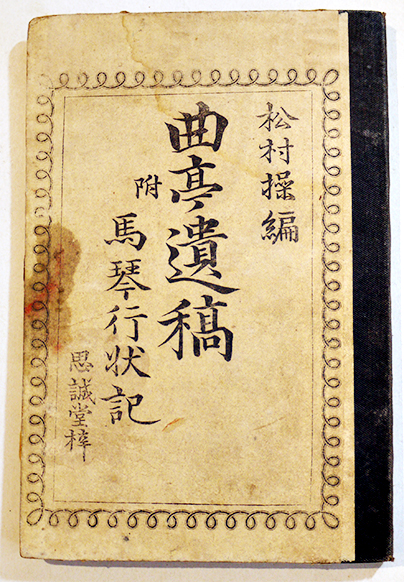 松村操編
曲亭遺稿
附
馬琴行状記
思誠堂梓